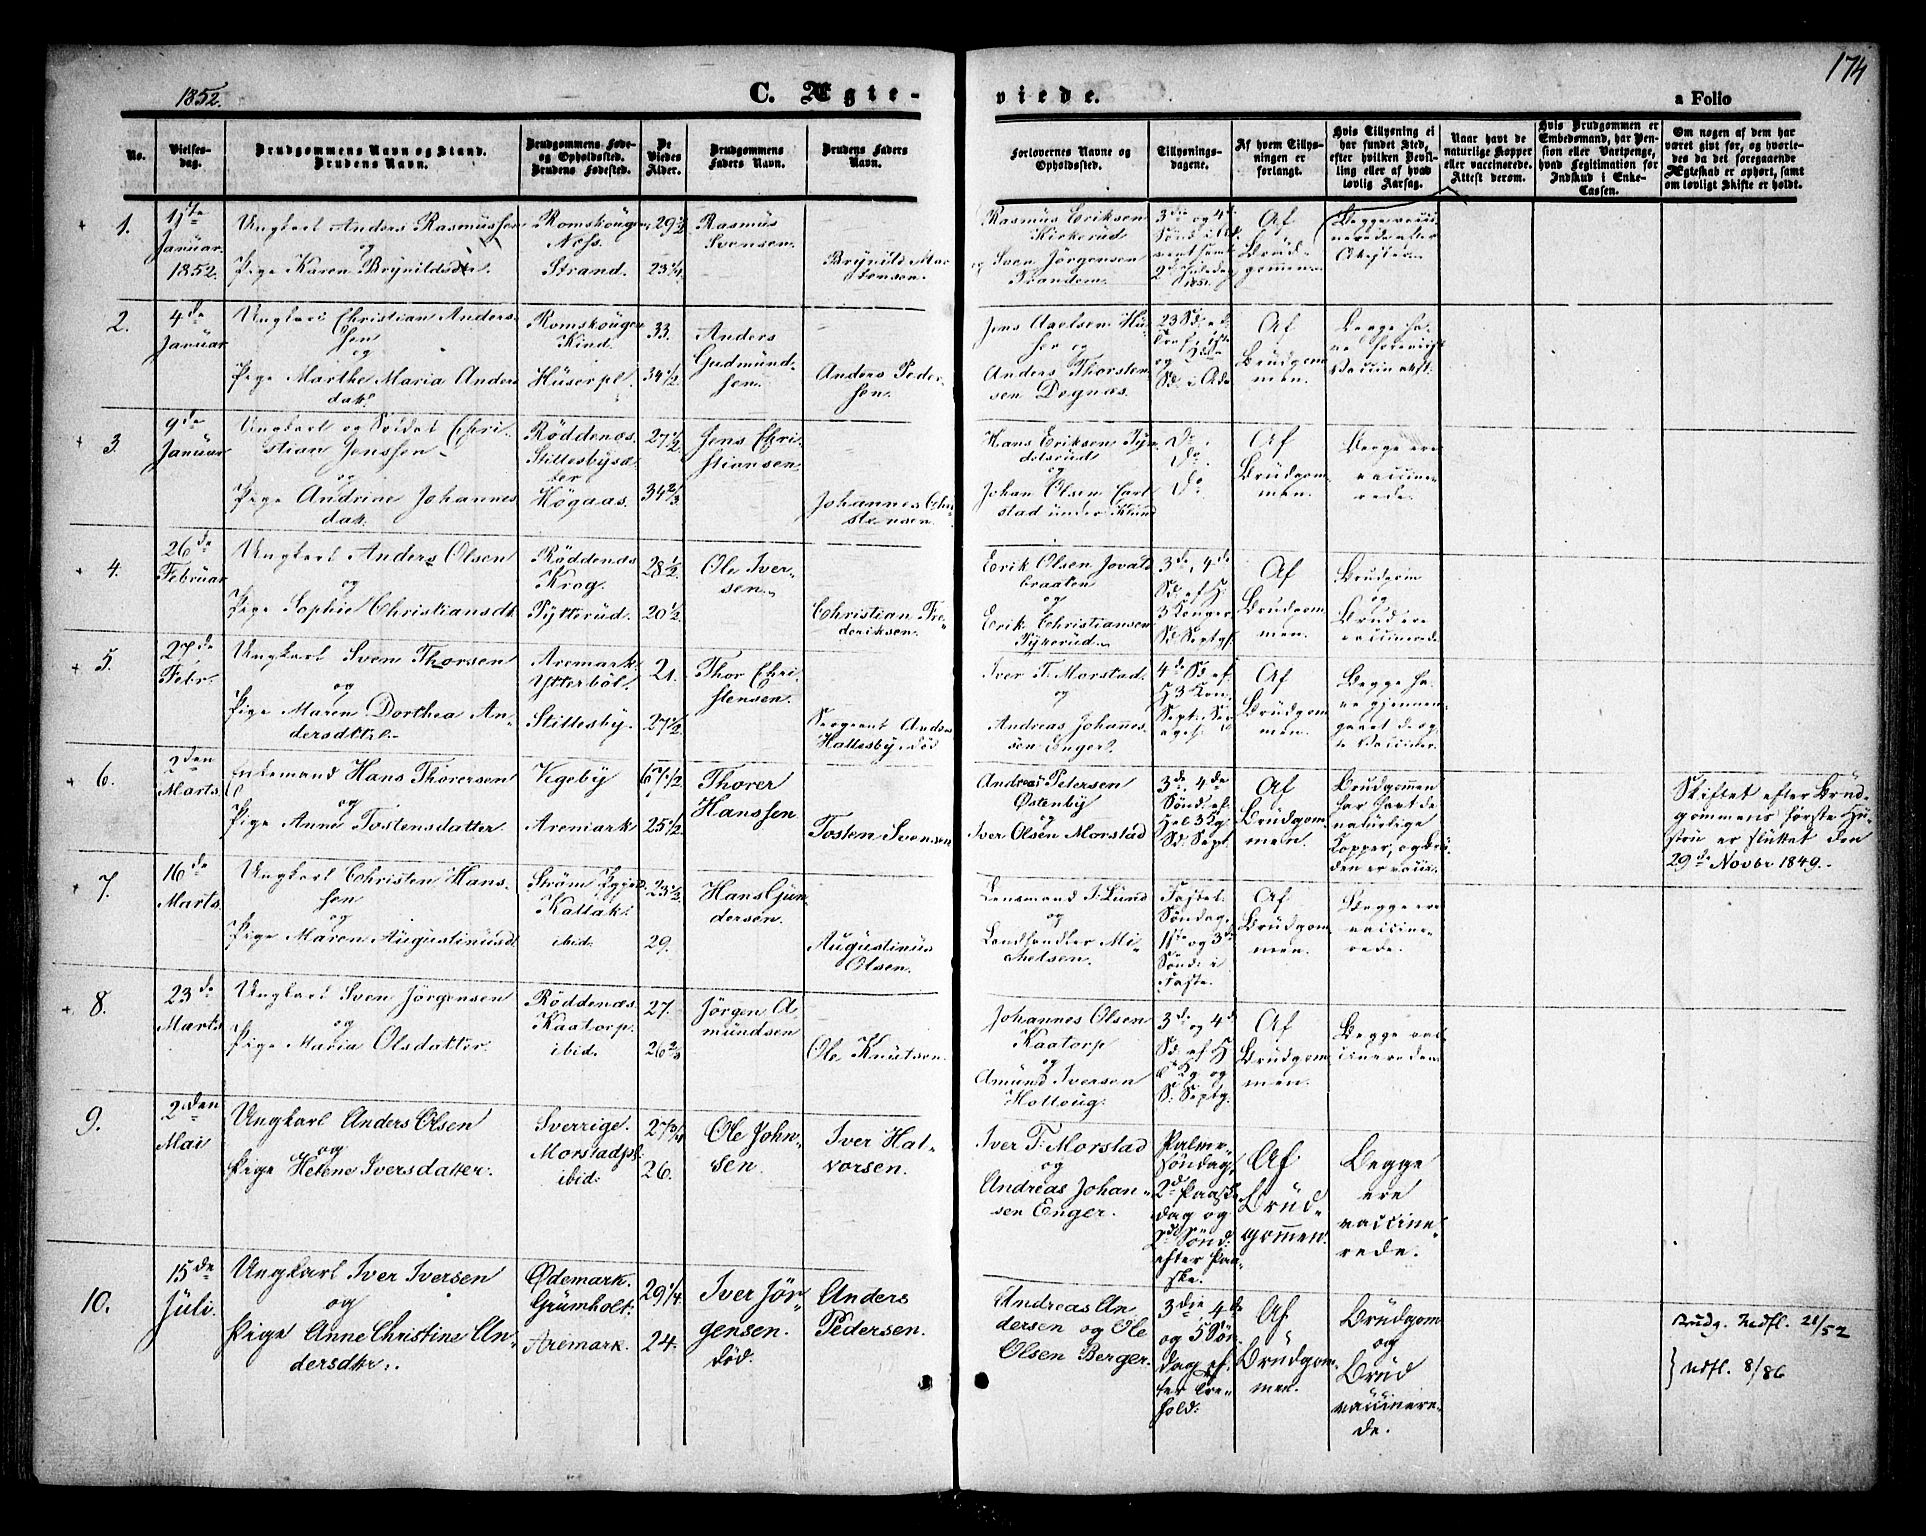 174
1852.
C. Ægte-
viede.
a Folio
No.
Vielses-
dag.
Brudgommens Navn og Stand.
Brudens Navn.
Brudgommens Føde-
og Opholdssted.
Brudens Fødested.
De
Viedes
Alder.
Brudgommens
Faders Navn.
Brudens Faders
Navn.
Forlovernes Navne og
Opholdssted.
Tillysnings-
dagene.
Af hvem Tillys-
ningen er
forlangt.
Hvis Tillysning ei
har fundet Sted,
efter hvilken Bevil-
ling eller af hvad
lovlig Aarsag.
Naar havt de
naturlige Kopper
eller vaccinerede.
Attest derom.
Hvis Brudgommen er
Embedsmand, har Pen-
sion eller Vartpenge,
hvad Legitimation for
Indskud i Enke-
Cassen.
Om nogen af dem har
været gift før, og hvorle-
des da det foregaaende
Ægteskab er ophørt, samt
om lovligt Skifte er holdt.
1.
Januar
1852.
Ungkarl Anders Rasmussen
og
Pige Karen Brynildsdtr
Romskougen
Næss.
Strand.
29 1/2
23 1/4
Rasmus
Svensen.
Brynild Mar
tensen.
Rasmus Eriksen
Kirkerud
og Sven Jörgensen
Trandem.
3die og 4de
2d Juledag
1851.
Af
Brud-
gommen.
Begge vacci
nerede efter
Attester.
2.
4de
Januar
Ungkarl Christian Anders-
sen
og
Pige Marthe Maria Anders
datr
Romskougen
Kind.
Huserpl.
33.
34 1/2
Anders
Gudmund-
sen.
Anders Peder-
sen.
Jens Axelsen Hu-
ser og
Anders Thorsten-
sen Degnæs.
Af
Brudgom
men.
3.
9de
Januar
Ungkarl og Soldat Chri-
stian Jenssen
og
Pige Andrine Johannes
datr.
Röddenæs.
Stillesbysæ
ter
Högaas.
27 1/2
34 2/3
Jens Chri-
stiansen
Johannes Chri-
stensen.
Hans Eriksen
og
Johan Olsen Carl
stad under Klund
Do.
Do
Do
Af
Brudgom
men.
Begge ere
vaccine-
rede.
4.
26de
Februar
Ungkarl Anders Olsen
og
Pige Sophie Christiansdt.
Röddenæs
Krog.
Tytterud.
28 1/2.
20 1/2
Ole Iver-
sen.
Christian Fre-
deriksen.
Erik Olsen
braaten
og
Erik Christiansen
3de, 4de
Sd. ef. H.
3 Konger
Sd. Septg.
Af
Brudgom
men.
Brudgom
og
Brud ere
vaccinerede.
5.
27de
Febr.
Ungkarl Sven Thorsen
og
Pige Maren Dorthea An-
dersdttr.
Aremark.
Ytterböl.
Stillesby.
21.
27 1/2
Thor Chri-
stensen.
Sergeant Anders
Hallesby, död
Iver T. Morstad.
og
Andreas Johannes-
sen Enger.
Af
Brudgom
men.
Begge ha-
ve gjennem
gaaet de og
te Vacciner.
6.
2den
Marts.
Enkemand Hans Thorersen
og
Pige Anne Tostensdatter.
Vegeby
Aremark
67 1/2
25 1/2
Thorer
Hanssen
Tosten Svensen
Andreas Petersen
Østenby
og
Iver Olsen Morstad
3de, 4de
Sönd. ef.
Hel 3 Kg.
Sd. Sept.
Af
Brudgom
men.
Brudgommen
har havt de
naturlige
Kopper, og Bru
den er vacci.
Skiftet efter Brud-
gommens förste Hu-
stru er sluttet den
29de Novbr 1849.
7.
16de
Marts.
Ungkarl Christen Hans-
sen
og
Pige Maren Augustinusd.
Ström
Kallak:
ibid.
23 1/3
29.
Hans Gun
dersen.
Augustinus
Olsen.
Lensmand J. Lund
og
Landhandler Mi-
chelsen.
Fastel.
Söndag,
1ste og 3de
Sönd. i
Faste.
Af
Brudgom
men.
Begge ere
vaccine-
rede.
8.
23de
Marts
Ungkarl Sven Jörgensen
og
Pige Maria Olsdatter.
Röddenæs
Kaatorp.
ibid.
27.
26 2/3
Jörgen A
mundsen
Ole Knutsen
Johannes Olsen
Kaatorp
og
Amund Iversen
Holtoug.
3de og 4de
Sd. ef. H
Kg. og
S. Septg.
Af
Brudgom
men.
Begge vac
cinerede.
9.
2den
Mai
Ungkarl Anders Olsen
og
Pige Helene Iversdatter.
Sverrige.
Morstadpl.
ibid:
27 3/4
26.
Ole John-
sen.
Iver Hal-
vorsen.
Iver T. Morstad
og
Andreas Johan-
sen Enger.
Palme-
söndag,
2d Paaske
dag og
2d Sönd:
efter Paa-
ske.
Af
Brud-
gommen.
Begge
ere
vaccine-
rede.
10.
15de
Juli.
Ungkarl Iver Iversen
og
Pige Anne Christine An-
dersdtr.
Ødemark.
Grumholt:
Aremark.
29 1/4.
24.
Iver Jör-
gensen.
död.
Anders
Pedersen.
Andreas An
dersen og Ole
Olsen Berger.
3die 4de
og 5 Sön
dag ef-
ter Tre-
fold:
Af
Brudgom-
men.
Brudgom
og
Brud
vaccinere-
de.
Brudg. Indfl. 21/52
} Udfl. 8/86